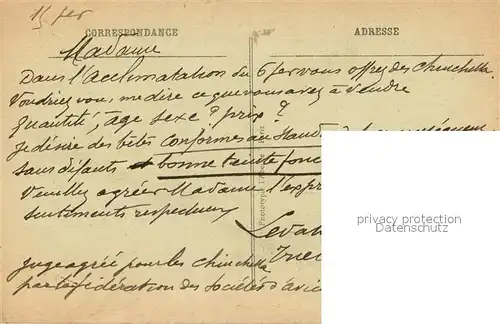 15 fev
CORRESPONDANCE
ADRESSE
Madame
Dans l'Acclimatation du 6 fer vous offrez des chinchilla
Voudriez vous me dire ce que vous avez à vendre
quantité, age sexe ? prix ?
Je désire des bêtes conformes au Standard
sans défauts bonne teinte fonc
Veuillez agréer Madame l'expr
sentiments respectueux
juge agréé pour les chinchilla
par la fédération des sociétés d'avic
privacy protection
Datenschutz